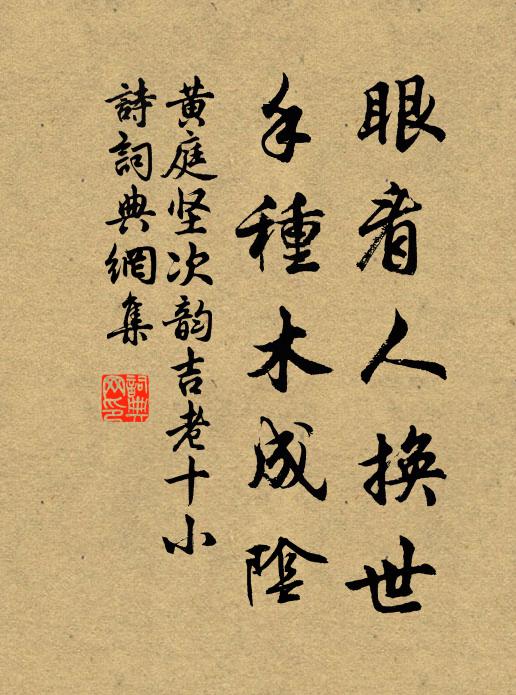 眼看人換世
手種木成陰
黄庭坚次韵吉老十小
詩詞典網集
詞典网印